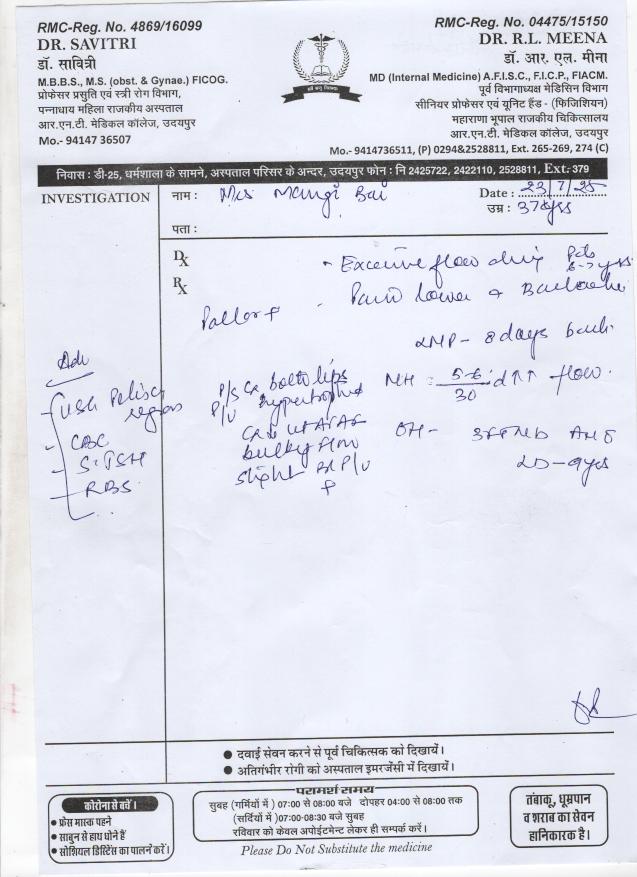 RMC-Reg. No. 4869/16099
DR. SAVITRI
डॉ. सावित्री
M.B.B.S., M.S. (obst. & Gynae.) FICOG.
प्रोफेसर प्रसुति एवं स्त्री रोग विभाग,
पन्नाधाय महिला राजकीय अस्पताल
आर.एन.टी. मेडिकल कॉलेज, उदयपुर
Mo.- 94147 36507
RMC-Reg. No. 04475/15150
DR. R.L. MEENA
डॉ. आर. एल. मीना
MD (Internal Medicine) A.F.I.S.C., F.I.C.P., FIACM.
पूर्व विभागाध्यक्ष मेडिसिन विभाग
सीनियर प्रोफेसर एवं यूनिट हैंड - (फिजिशियन)
महाराणा भूपाल राजकीय चिकित्सालय
आर.एन.टी. मेडिकल कॉलेज, उदयपुर
Mo.- 9414736511, (P) 0294&2528811, Ext. 265-269, 274 (C)
निवास : डी-25, धर्मशाला के सामने, अस्पताल परिसर के अन्दर, उदयपुर फोन : नि 2425722, 2422110, 2528811, Ext.-379
INVESTIGATION
नाम : Mrs Mangi Bai
Date : 23/7/25
उम्र : 37 yrs
पता :
Dx
Rx
- Excessive flow during
Pain lower + Backache
Pallor +
LMP - 8 days back
Adv
USG Pelvic region
CBC
S. TSH
RBS
P/S Cx both lips hypertrophied
P/V
bulky
slight
MH : 5-6/30 d ↑↑ flow.
OH -
LD - 9 yrs
दवाई सेवन करने से पूर्व चिकित्सक को दिखायें।
अतिगंभीर रोगी को अस्पताल इमरजेंसी में दिखायें।
कोरोना से बचें।
फ्रेस मास्क पहने
साबुन से हाथ धोने हैं
सोशियल डिस्टिेंस का पालन करें।
परामर्श समय
सुबह (गर्मियों में ) 07:00 से 08:00 बजे दोपहर 04:00 से 08:00 तक
(सर्दियों में )07:00-08:30 बजे सुबह
रविवार को केवल अपोईटमेन्ट लेकर ही सम्पर्क करें।
Please Do Not Substitute the medicine
तंबाकू, धूम्रपान
व शराब का सेवन
हानिकारक है।